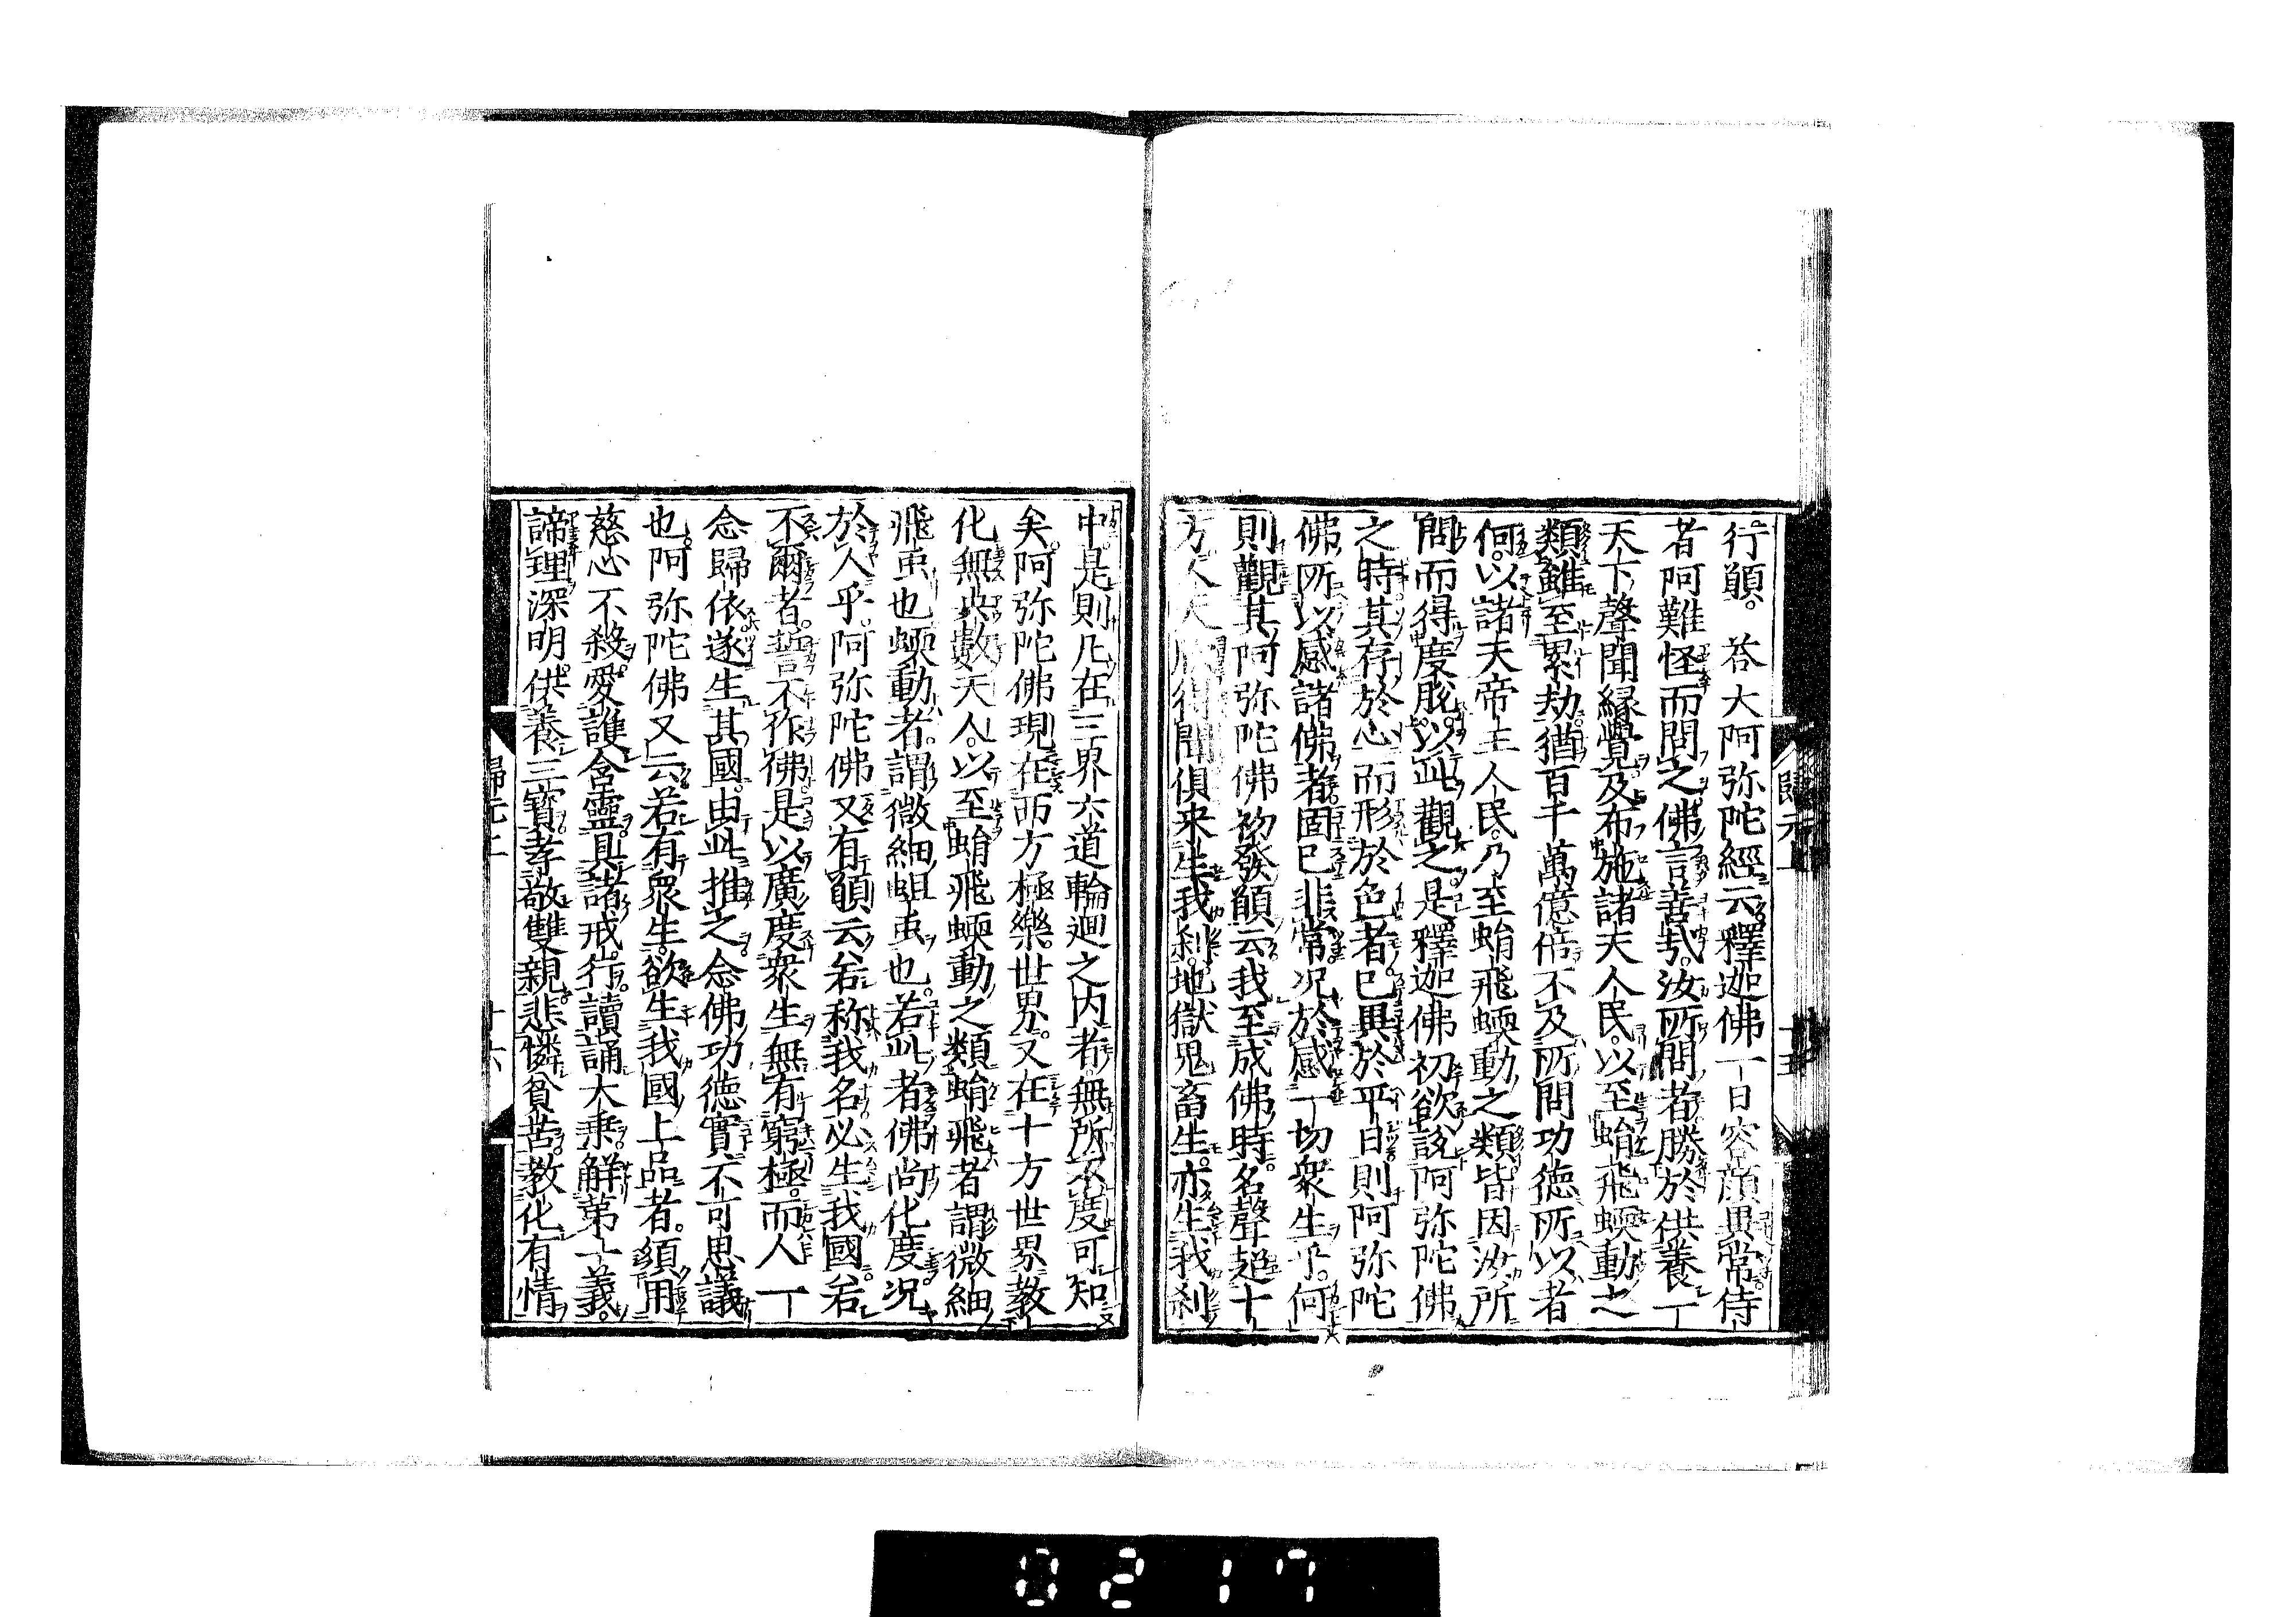 行願。荅大阿弥陀經云釋迦佛一日容顔異常侍
者阿難怪而問之佛言善哉汝所問者勝於供養一
天下聲聞縁覺及布施諸天人民以至蜎飛蝡動之
類雖至累劫猶百千萬億倍不及所問功徳所以者
何以諸天帝王人民乃至蜎飛蝡動之類皆因汝所
問而得度脱以此觀之是釋迦佛初欲說阿弥陀佛
之時其存於心而形於色者已異於平日則阿弥陀
佛所以感諸佛者固已非常况於感一切衆生乎何
則觀其阿弥陀佛初發願云我至成佛時名聲超十
方人天欣得聞俱来生我刹地獄鬼畜生亦生我刹
歸元上
十五
中是則凡在三界六道輪廻之内者無所不度可知
矣阿弥陀佛現在西方極樂世界又在十方世界教
化無央數天人以至蜎飛蝡動之類蜎飛者謂微細
飛虫也蝡動者謂微細蛆虫也若此者佛尚化度况
於人乎阿弥陀佛又有願云若称我名必生我國若
不爾者誓不作佛是以廣度衆生無有窮極而人一
念歸依遂生其國由此推之念佛功徳實不可思議
也阿弥陀佛又云若有衆生欲生我國上品者須用
慈心不殺愛護含靈具諸戒行讀誦大乗解第一義
諦理深明供養三寶孝敬雙親悲憐貧苦教化有情
歸元上
十六
0217